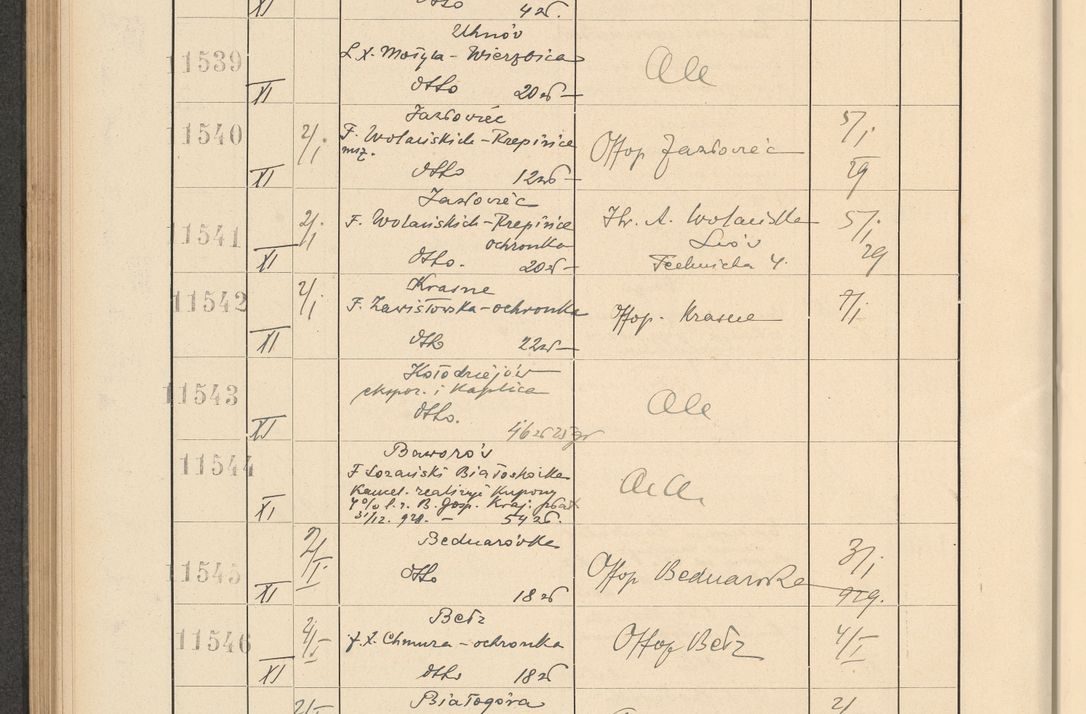 XI dtto 4 zł.
11539
Uhnów
L. X. Mosyla - Wierzbica
XI dtto 20 zł —
Ala
11540
2/I
Jazłowiec
F. Wolańskich - Rzepińce
msz.
XI dtto 12 zł —
Offop Jazłowiec
5/I
29
11541
2/I
Jazłowiec
F. Wolańskich - Rzepińce
ochronka
XI dtto. 20 zł —
Hr. A. Wolańska
Lwów
Technicka 4.
5/I
29
11542
2/I
Krasne
F. Zawistowska - ochronka
XI dtto 22 zł —
Offop. Krasne
7/I
11543
Kołodziejów
ekspoz. i Kaplica
XI dtto.
46 zł 25 gr
Ala
11544
Baworów
F Łozański Białoskórka
Kancel. realizuje Kupony
4% l. z. B. Gosp. Kraj. płat
XI 31/12. 928. — 54 zł.
11545
2/I
Bednarówka
dtto
XI 18 zł
Offop Bednarówka
3/I
929.
11546
2/I
Bełz
f. X. Chmura - ochronka
XI dtto 18 zł
Offop Bełz
4/I
2/I
Białogóra
2/